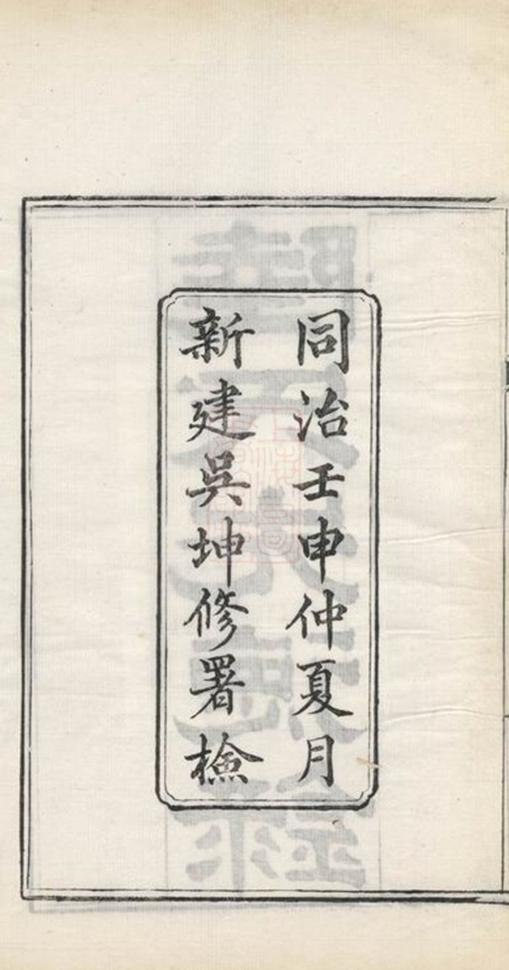 同治壬申仲夏月
新建吳坤修署檢